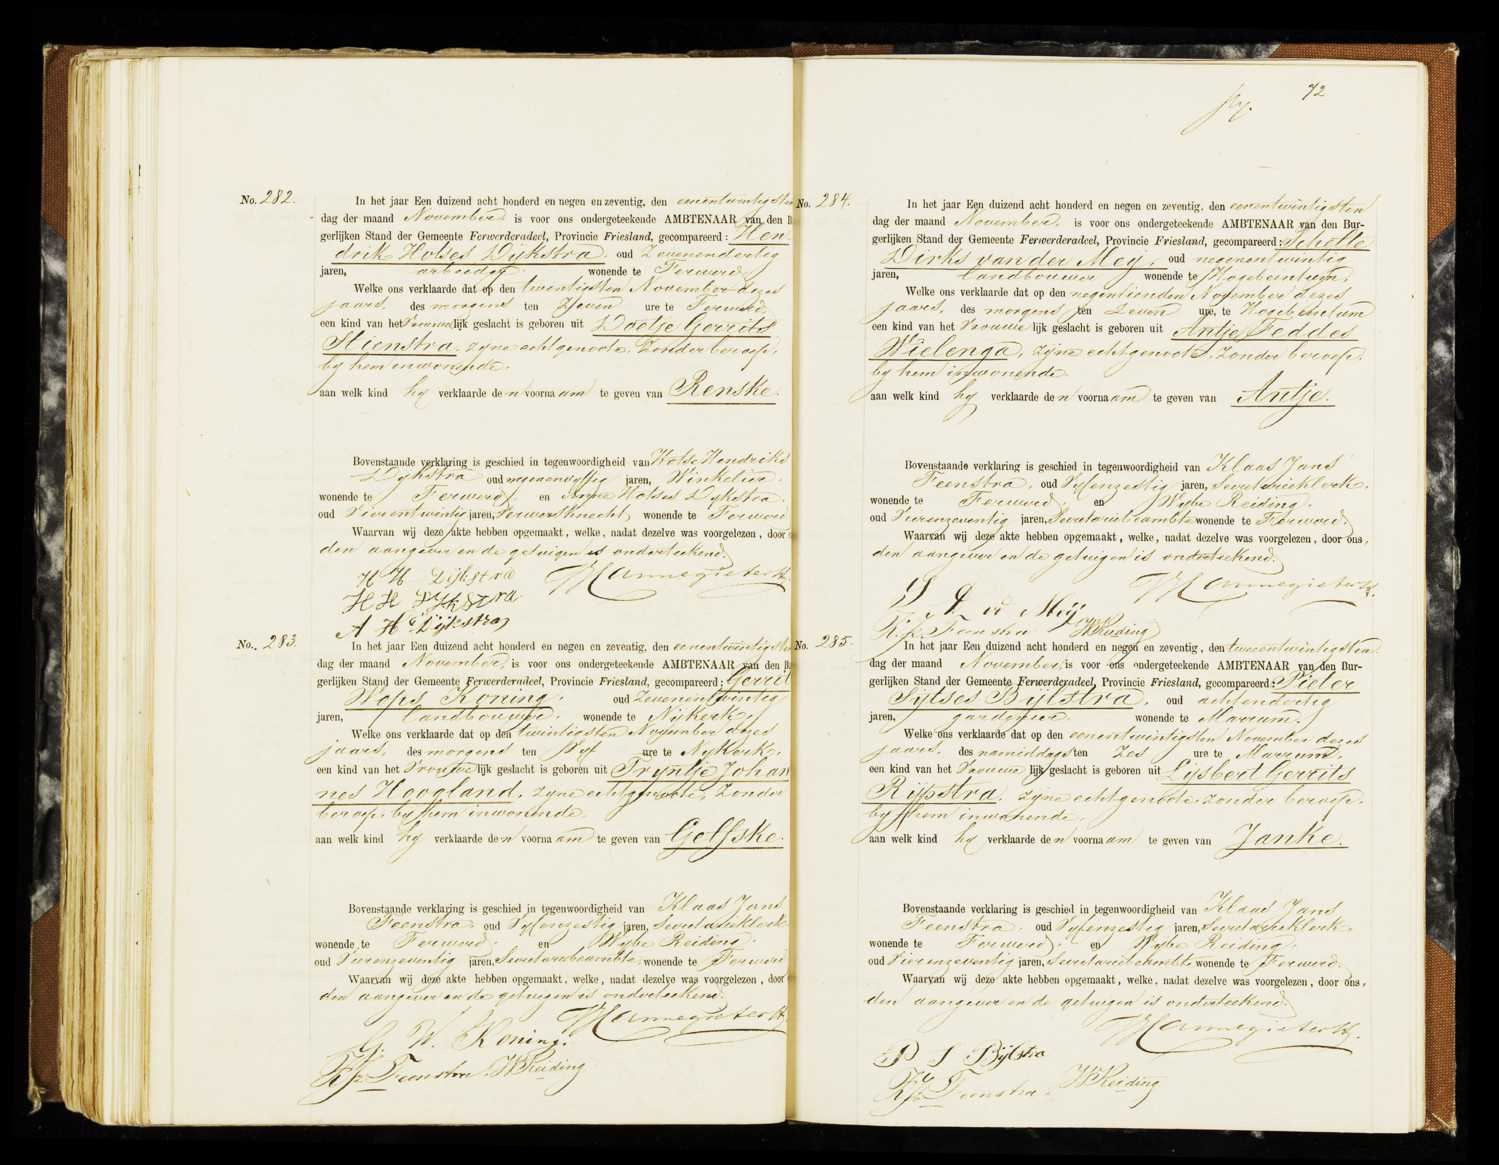 No. 282.
In het jaar Een duizend acht honderd en negen en zeventig, den eenentwintigsten
dag der maand November is voor ons ondergeteekende AMBTENAAR van den B
gerlijken Stand der Gemeente Ferwerderadeel, Provincie Friesland, gecompareerd: Hen
drik Hotses Dijkstra, oud Zevenendertig
jaren, arbeider wonende te Ferwerd
Welke ons verklaarde dat op den twintigsten November dezes
jaars, des morgens ten Zeven ure te Ferwerd
een kind van het Vrouwelijk geslacht is geboren uit Doetje Gerrits
Stienstra, zyne echtgenoote, Zonder beroep,
by hem inwonende.
aan welk kind hy verklaarde den voornaam te geven van Renske.
Bovenstaande verklaring is geschied in tegenwoordigheid van Hotse Hendriks
Dijkstra oud negenenvyftig jaren, Winkelier,
wonende te Ferwerd, en Hotses Dykstra,
oud Vierentwintig jaren, Ferwersknecht, wonende te Ferwerd
Waarvan wij deze akte hebben opgemaakt, welke, nadat dezelve was voorgelezen, door
den aangever en de getuigen is onderteekend.
H H Dijkstra
H H Dykstra
A H Dijkstra
No. 283.
In het jaar Een duizend acht honderd en negen en zeventig, den eenentwintigsten
dag der maand November, is voor ons ondergeteekende AMBTENAAR van den B
gerlijken Stand der Gemeente Ferwerderadeel, Provincie Friesland, gecompareerd: Gerrit
Wopes Koning, oud Zevenentwintig
jaren, landbouwer, wonende te Nijkerk,
Welke ons verklaarde dat op den twintigsten November dezes
jaars, des morgens ten Vyf ure te Nykerk,
een kind van het Vrouwelijk geslacht is geboren uit Tryntje Johan
nes Hoogland, zyne echtgenoote, Zonder
beroep, by hem inwonende.
aan welk kind hy verklaarde den voornaam te geven van Gelfske.
Bovenstaande verklaring is geschied in tegenwoordigheid van Klaas Jans
Feenstra oud Vyfenzestig jaren, Secretarieklerk
wonende te Ferwerd, en Wybe Reiding,
oud Vierenzeventig jaren, wonende te Ferwerd
Waarvan wij deze akte hebben opgemaakt, welke, nadat dezelve was voorgelezen, door
den aangever en de getuigen is onderteekend.
G. W. Koning.
Feenstra WReiding
72
No. 284.
In het jaar Een duizend acht honderd en negen en zeventig, den eenentwintigsten
dag der maand November, is voor ons ondergeteekende AMBTENAAR van den Bur-
gerlijken Stand der Gemeente Ferwerderadeel, Provincie Friesland, gecompareerd: Scholte
Dirks van der Mey, oud negenentwintig
jaren, landbouwer wonende te Hogebeintum,
Welke ons verklaarde dat op den negentienden November dezes
jaars, des morgens ten Zeven ure, te Hogebeintum
een kind van het Vrouwelijk geslacht is geboren uit Antje Feddes
Wielenga, zijne echtgenoote, Zonder beroep,
by hem inwonende.
aan welk kind hy verklaarde den voornaam te geven van Antje.
Bovenstaande verklaring is geschied in tegenwoordigheid van Klaas Jans
Feenstra, oud Vyfenzestig jaren, Secretarieklerk,
wonende te Ferwerd, en Wybe Reiding,
oud Vierenzeventig jaren, wonende te Ferwerd.
Waarvan wij deze akte hebben opgemaakt, welke, nadat dezelve was voorgelezen, door ons,
den aangever en de getuigen is onderteekend.
Meij
Feenstra WReiding
No. 285.
In het jaar Een duizend acht honderd en negen en zeventig, den tweeentwintigsten
dag der maand November, is voor ons ondergeteekende AMBTENAAR van den Bur-
gerlijken Stand der Gemeente Ferwerderadeel, Provincie Friesland, gecompareerd: Pieter
Sijtses Bijlstra, oud achtendertig
jaren, gardenier, wonende te Marrum.
Welke ons verklaarde dat op den eenentwintigsten November dezes
jaars, des namiddags ten Zes ure te Marrum,
een kind van het Vrouwelijk geslacht is geboren uit Lijsbert Gerrits
Rijpstra, zijne echtgenoote, zonder beroep,
by hem inwonende.
aan welk kind hy verklaarde den voornaam te geven van Janke.
Bovenstaande verklaring is geschied in tegenwoordigheid van Klaas Jans
Feenstra, oud Vyfenzestig jaren, Secretarieklerk
wonende te Ferwerd, en Wybe Reiding,
oud Vierenzeventig jaren, wonende te Ferwerd.
Waarvan wij deze akte hebben opgemaakt, welke, nadat dezelve was voorgelezen, door ons,
den aangever en de getuigen is onderteekend.
P S Bijlstra
Feenstra. WReiding